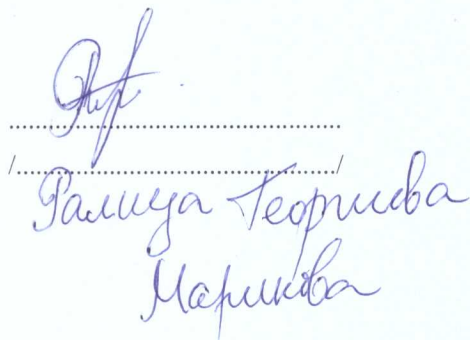 ........................................................
/......................................................./
Ралица Георгиева
Марикова